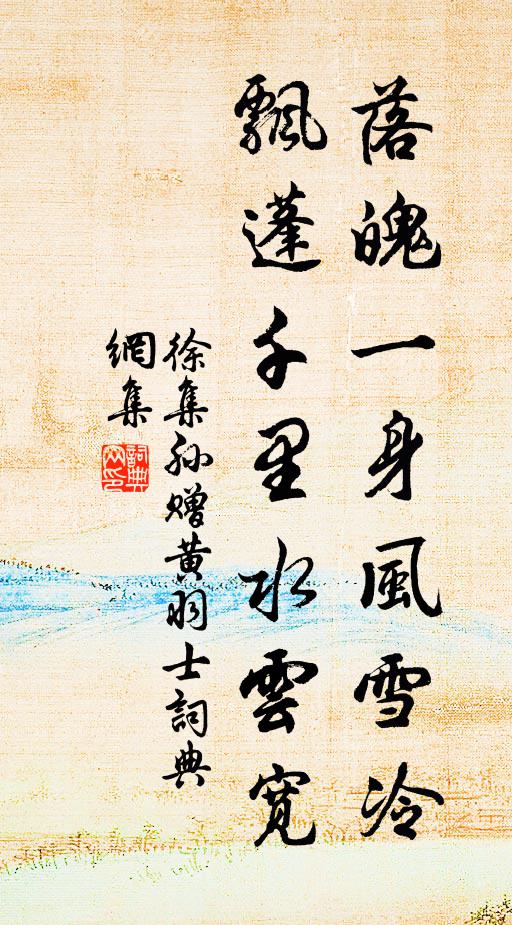 落魄一身風雪冷
飄蓬千里水雲寬
徐集孙赠黄羽士詞典
網集
詞典
网印